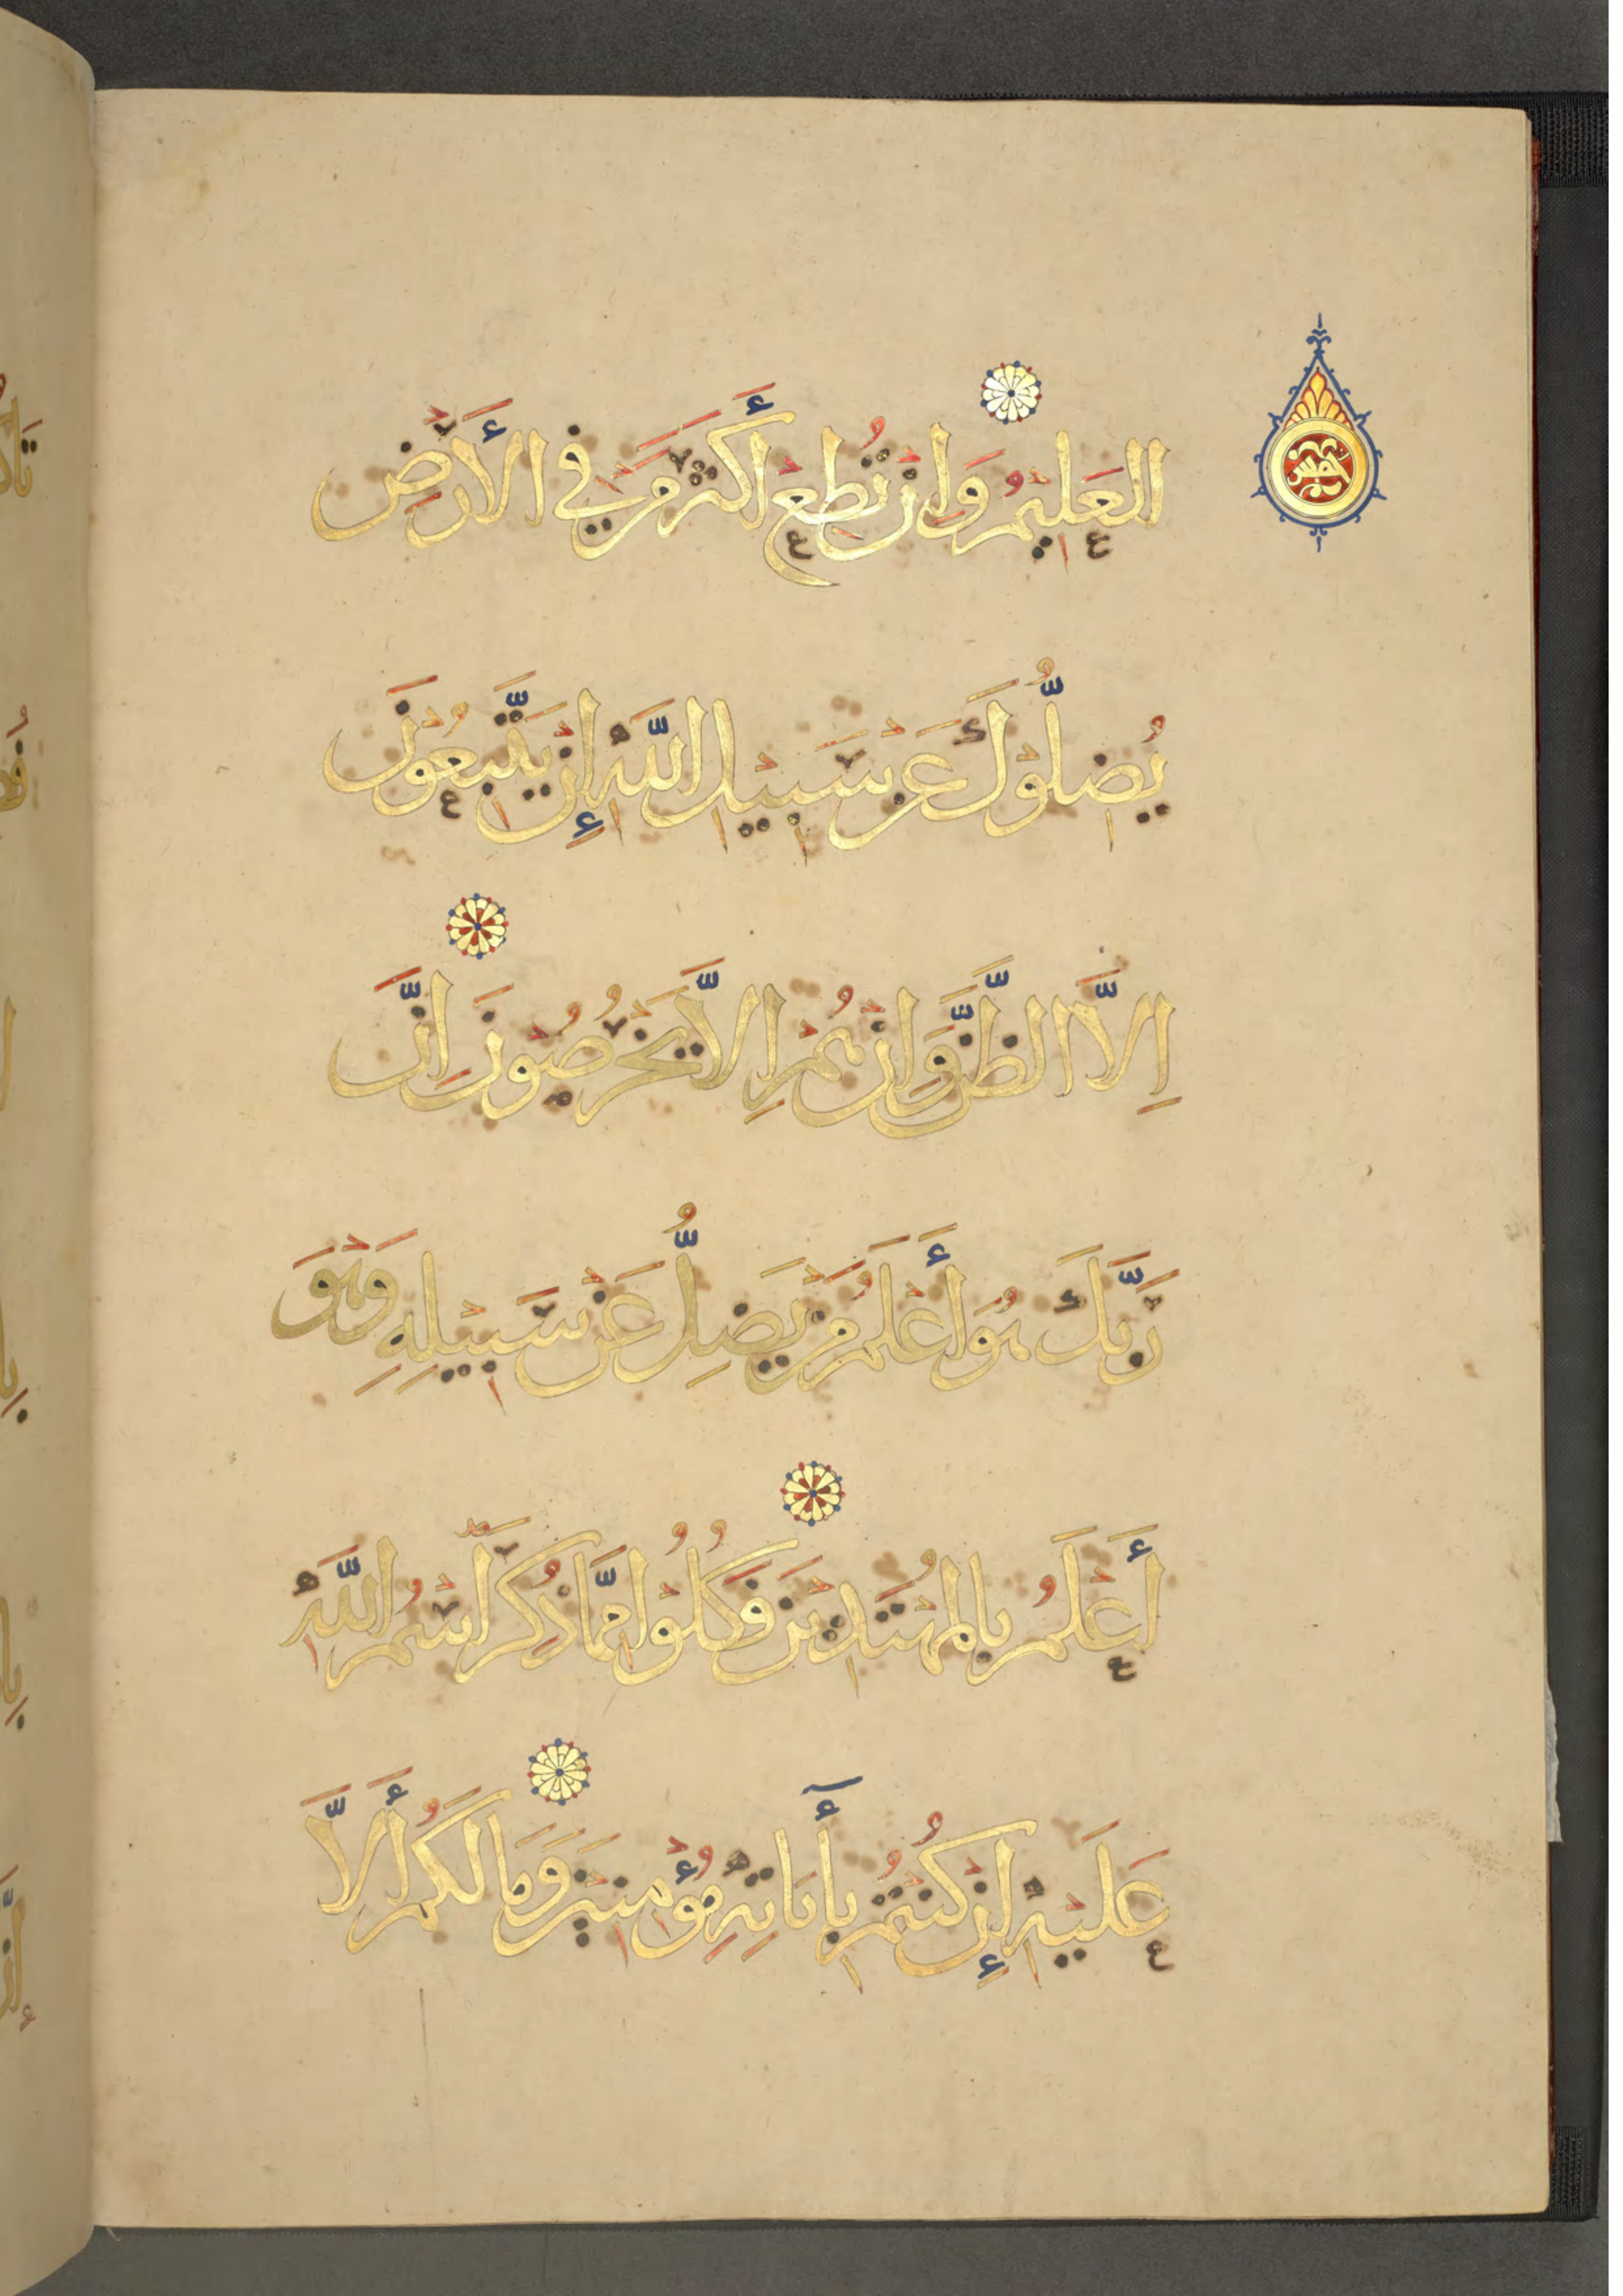 خمس
العَلِيْمُ وَاِنْ تُطِعْ أَكْثَرَ مَنْ فِي الأَرْضِ
يُضِلُّوْكَ عَنْ سَبِيْلِ اللَّهِ إِنْ يَتَّبِعُوْنَ
اِلَّا الظَّنَّ وَّاِنْ هُمْ اِلَّا يَخْرُصُوْنَ اِنَّ
رَبَّكَ هُوَ أَعْلَمُ مَنْ يَضِلُّ عَنْ سَبِيْلِهِ وَهْوَ
أَعْلَمُ بِالمُهْتَدِيْنَ فَكُلُوْا مِمَّا ذُكِرَ اسْمُ اللَّهِ
عَلَيْهِ إِنْ كُنْتُمْ بِأَٓيَاتِهِ مُؤْمِنِيْنَ وَمَا لَكُمْ أَلَّا